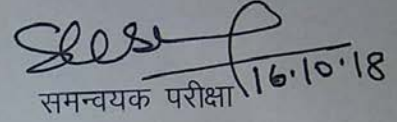 16.10.18
समन्वयक परीक्षा